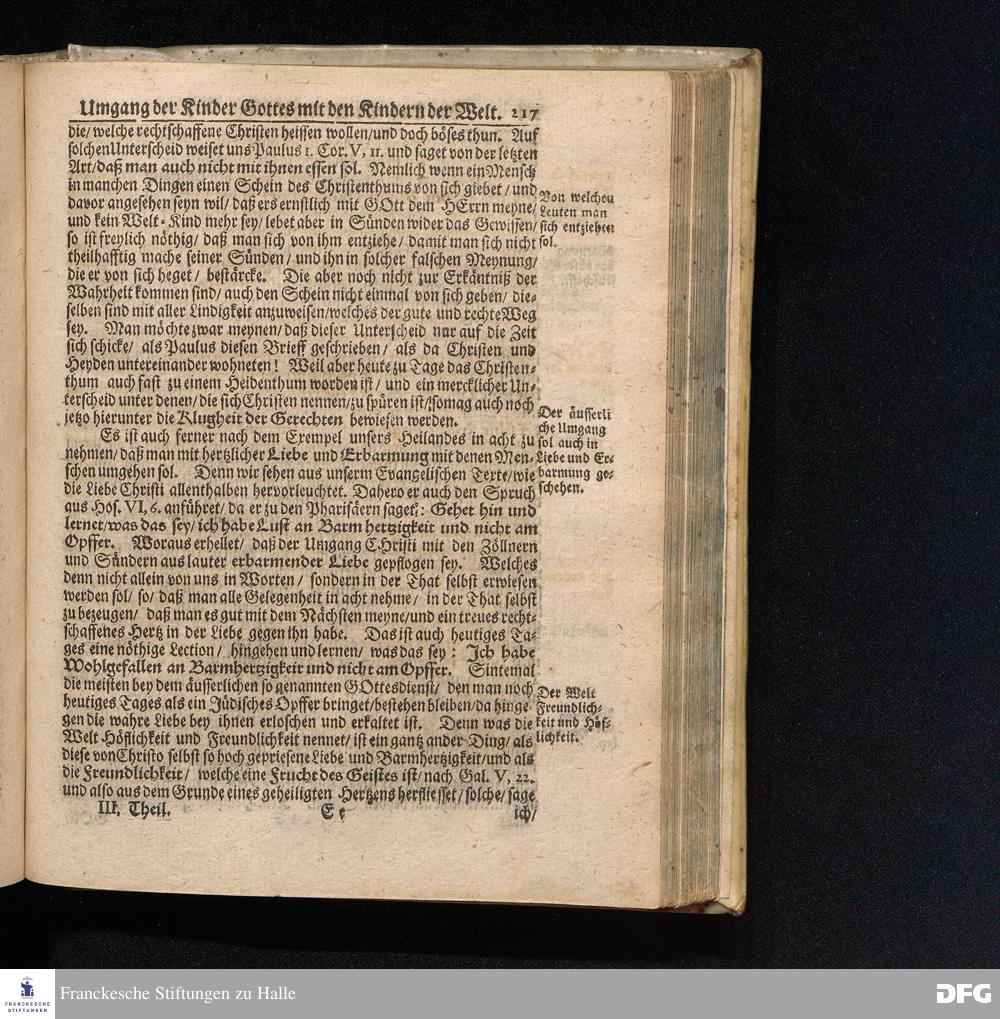 Umgang der Kinder Gottes mit den Kindern der Welt. 217
die/ welche rechtschaffene Christen heissen wollen/und doch böses thun. Auf
solchen Unterscheid weiset uns Paulus 1. Cor. V, 11. und saget von der letzten
Art/daß man auch nicht mit ihnen essen sol. Nemlich wenn ein Mensch
in manchen Dingen einen Schein des Christenthums von sich giebet/ und
davor angesehen seyn wil/ daß ers ernstlich mit GOtt dem HErrn meyne/
und kein Welt-Kind mehr sey/ lebet aber in Sünden wider das Gewissen/
so ist freylich nöthig/ daß man sich von ihm entziehe/ damit man sich nicht
theilhafftig mache seiner Sünden/ und ihn in solcher falschen Meynung/
die er von sich heget/ bestärcke. Die aber noch nicht zur Erkäntniß der
Wahrheit kommen sind/ auch den Schein nicht einmal von sich geben/ die-
selben sind mit aller Lindigkeit anzuweisen/welches der gute und rechte Weg
sey. Man möchte zwar meynen/ daß dieser Unterscheid nur auf die Zeit
sich schicke/ als Paulus diesen Brieff geschrieben/ als da Christen und
Heyden untereinander wohneten! Weil aber heute zu Tage das Christen-
thum auch fast zu einem Heidenthum worden ist/ und ein mercklicher Un-
terscheid unter denen/ die sich Christen nennen/zu spüren ist/ so mag auch noch
jetzo hierunter die Klugheit der Gerechten bewiesen werden.
Es ist auch ferner nach dem Exempel unsers Heilandes in acht zu
nehmen/ daß man mit hertzlicher Liebe und Erbarmung mit denen Men-
schen umgehen sol. Denn wir sehen aus unserm Evangelischen Texte/wie
die Liebe Christi allenthalben hervorleuchtet. Dahero er auch den Spruch
aus Hos. VI, 6. anführet/ da er zu den Pharisäern saget: Gehet hin und
lernet/was das sey/ ich habe Lust an Barmhertzigkeit und nicht am
Opffer. Woraus erhellet/ daß der Umgang Christi mit den Zöllnern
und Sündern aus lauter erbarmender Liebe gepflogen sey. Welches
denn nicht allein von uns in Worten/ sondern in der That selbst erwiesen
werden sol/ so/ daß man alle Gelegenheit in acht nehme/ in der That selbst
zu bezeugen/ daß man es gut mit dem Nächsten meyne/und ein treues recht-
schaffenes Hertz in der Liebe gegen ihn habe. Das ist auch heutiges Ta-
ges eine nöthige Lection/ hingehen und lernen/ was das sey: Ich habe
Wohlgefallen an Barmhertzigkeit und nicht am Opffer. Sintemal
die meisten bey dem äusserlichen so genannten GOttesdienst/ den man noch
heutiges Tages als ein Jüdisches Opffer bringet/bestehen bleiben/da hinge-
gen die wahre Liebe bey ihnen erloschen und erkaltet ist. Denn was die
Welt Höflichkeit und Freundlichkeit nennet/ ist ein gantz ander Ding/ als
diese von Christo selbst so hoch gepriesene Liebe und Barmhertzigkeit/und als
die Freundlichkeit/ welche eine Frucht des Geistes ist/ nach Gal. V, 22.
und also aus dem Grunde eines geheiligten Hertzens herfliesset/ solche/ sage
III. Theil. E e ich/
Von welchen
Leuten man
sich entziehen
sol.
Der äusserli
che Umgang
sol auch in
Liebe und Er-
barmung ge-
schehen.
Der Welt
Freundlich-
keit und Höf-
lichkeit.
FRANCKESCHE
STIFTUNGEN
Franckesche Stiftungen zu Halle
DFG